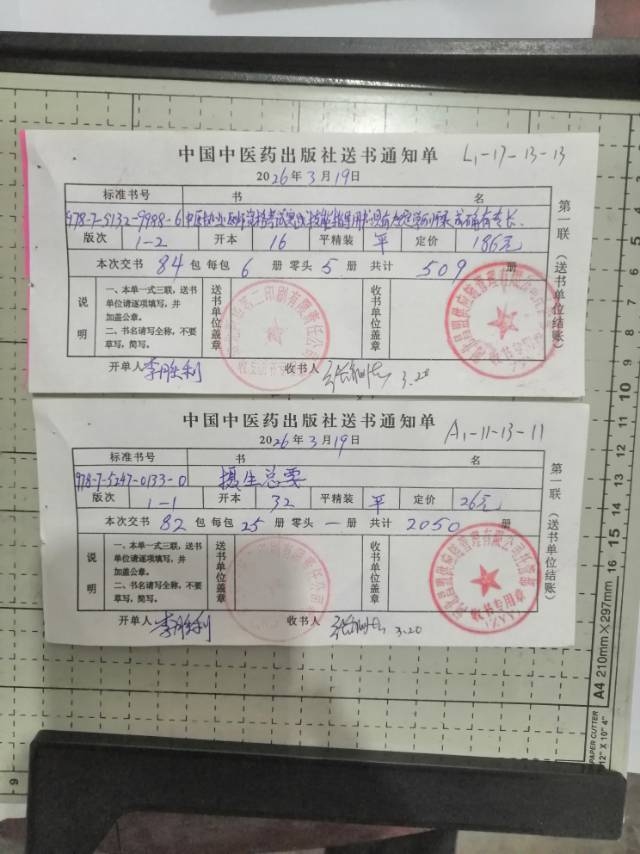 中国中医药出版社送书通知单 L1-17-13-13
2026年3月19日
标准书号 书名
978-7-5132-9988-6 中医执业医师资格考试实践技能指导用书
版次 1-2 开本 16 平精装 平 定价 186元
本次交书 84 包 每包 6 册 零头 5 册 共计 509 册
说明
一、本单一式三联，送书单位请逐项填写，并加盖公章。
二、书名请写全称，不要草写，简写。
送书单位盖章
收书单位盖章
开单人 李胜利 收书人 3.20
第一联（送书单位结账）
中国中医药出版社送书通知单 A1-11-13-11
2026年3月19日
标准书号 书名
978-7-5247-0133-0 摄生总要
版次 1-1 开本 32 平精装 平 定价 26元
本次交书 82 包 每包 25 册 零头 一 册 共计 2050 册
说明
一、本单一式三联，送书单位请逐项填写，并加盖公章。
二、书名请写全称，不要草写，简写。
送书单位盖章
收书单位盖章
收书专用章
开单人 李胜利 收书人 3.20
第一联（送书单位结账）
A4 210mm×297mm
PAPER CUTTER
12" X 10" 4"
5
10
15
9